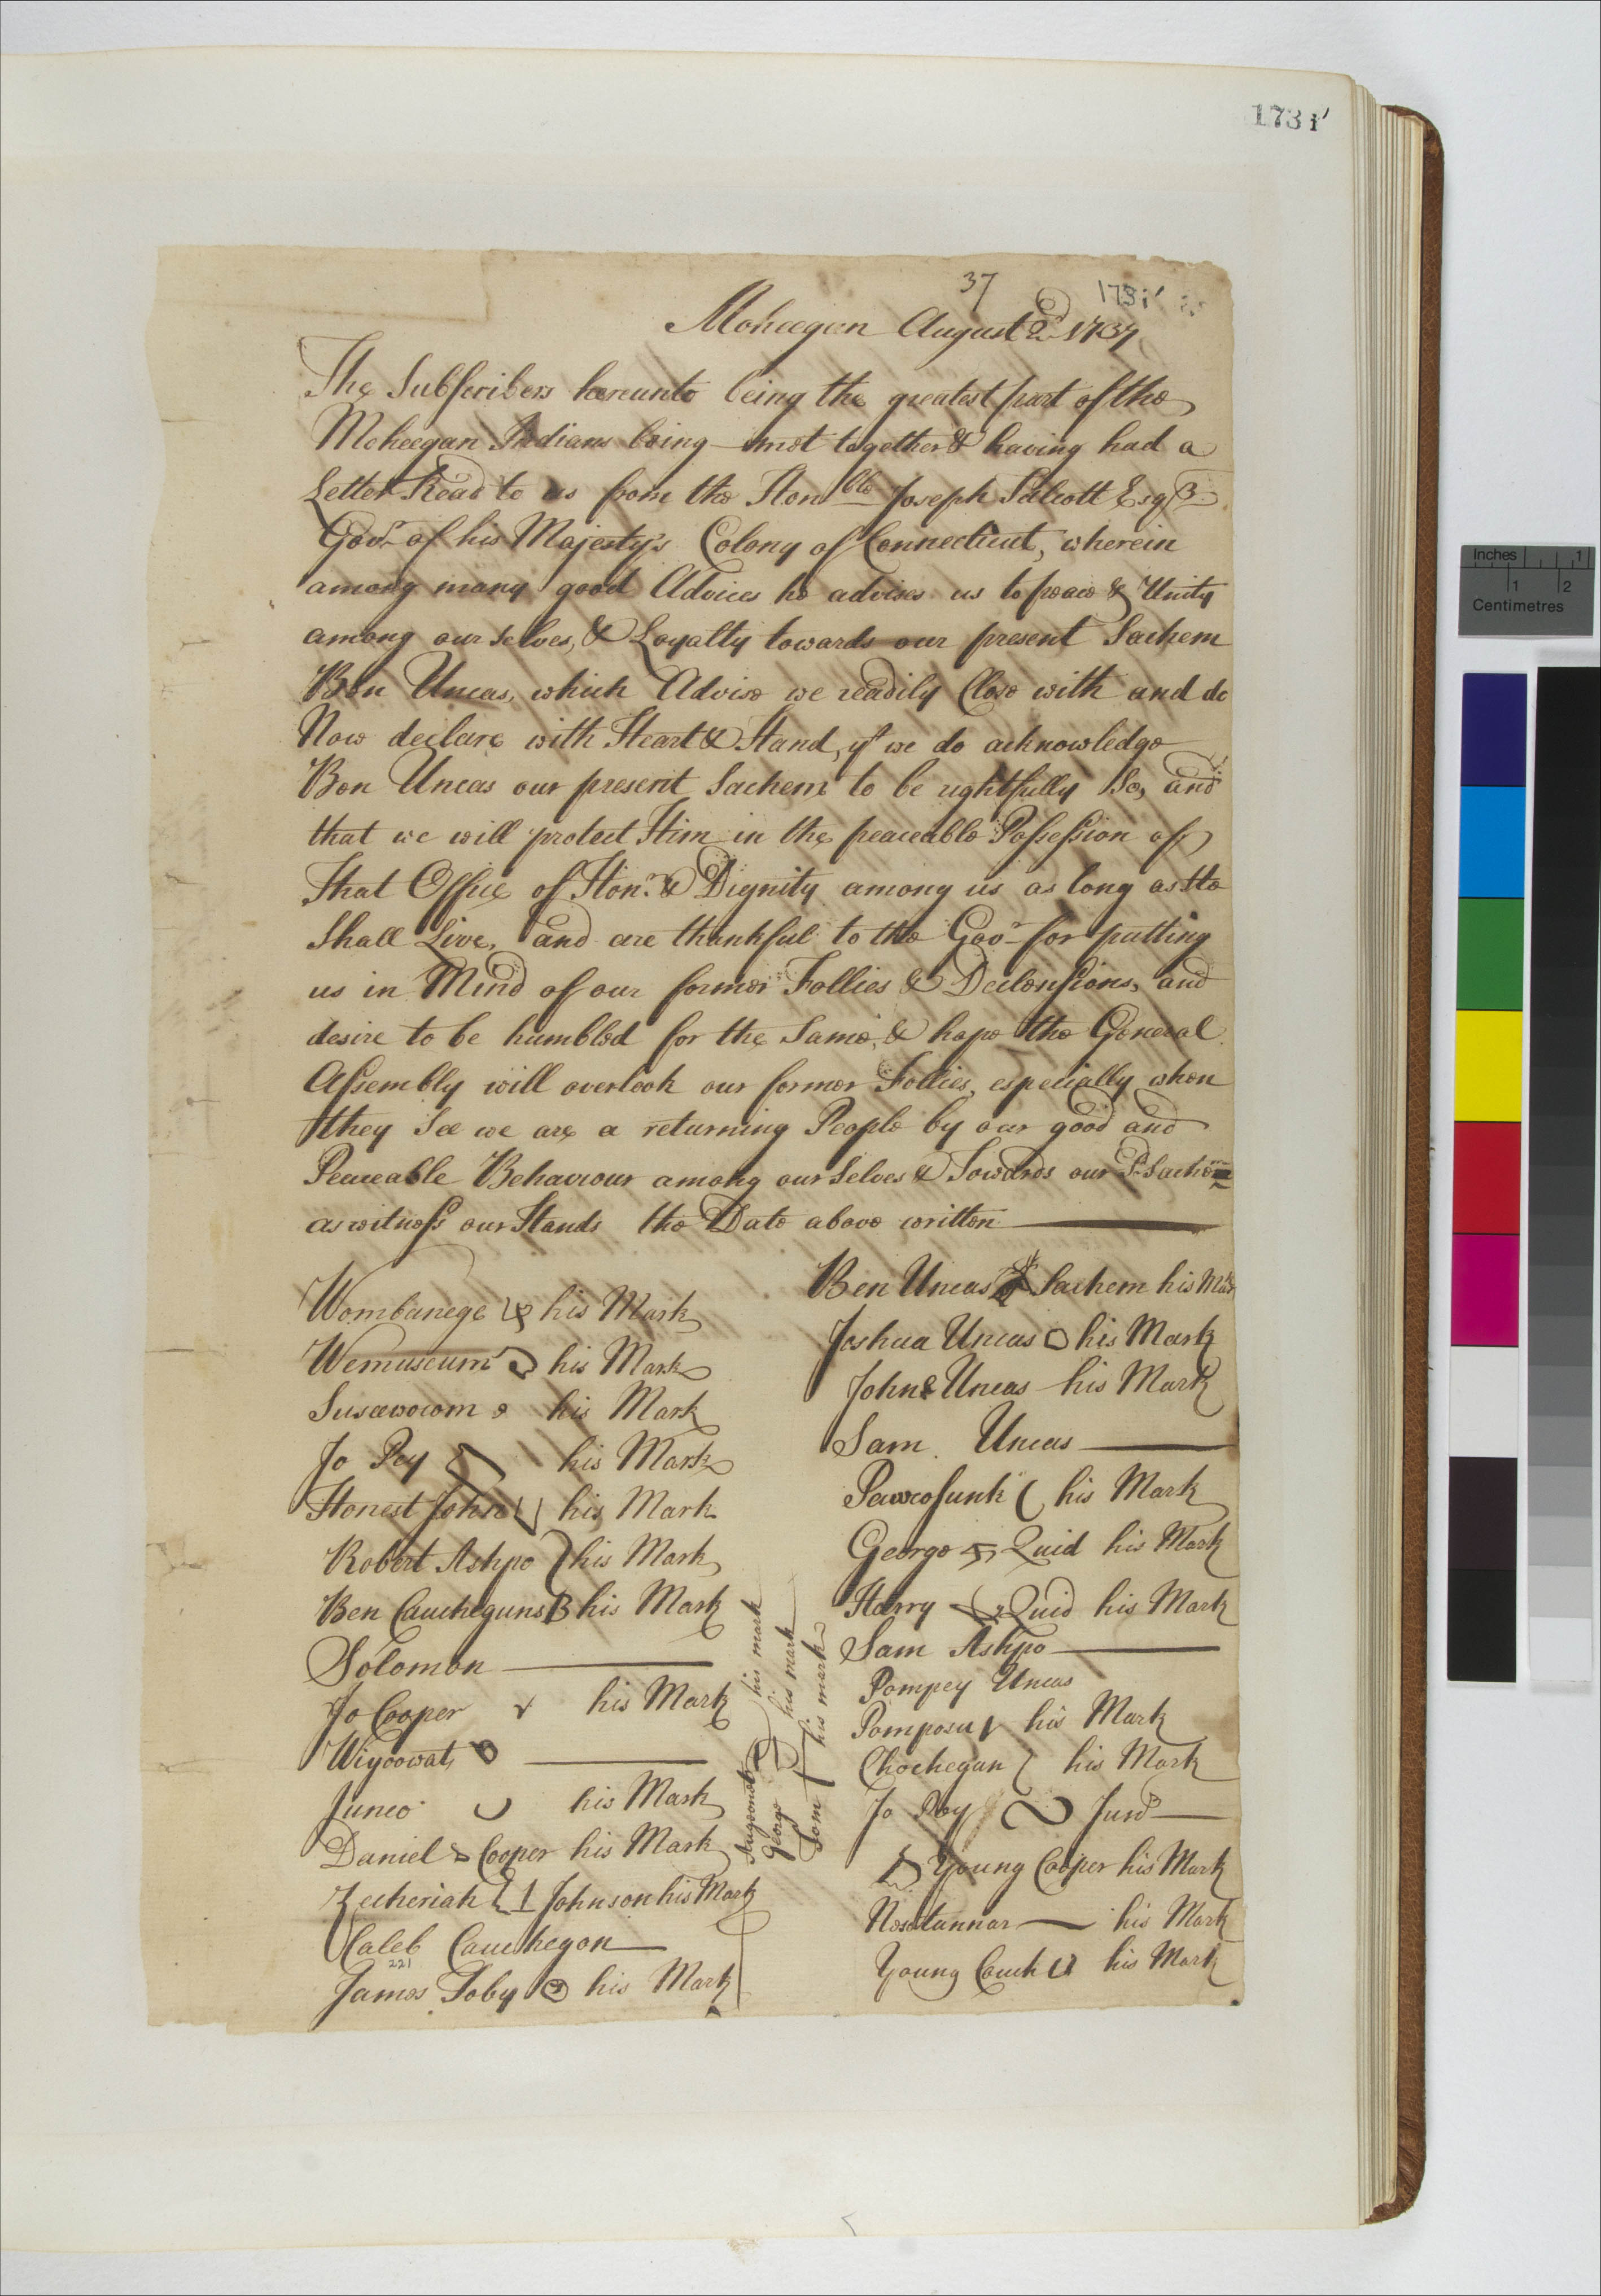 173i'
37
173i'
Moheegan August 2d 1737
The Subscribers hereunto being the greatest part of the
Moheegan Indians being met together & having had a
Letter Read to us from the Honble Joseph Talcott Esqr
Govr of his Majesty's Colony of Connecticut, wherein
among many good Advices he advises us to peace & Unity
among our selves, & Loyalty towards our present Sachem
Ben Uncas, which Advise we readily Close with and do
Now declare with Heart & Hand, yt we do acknowledge
Ben Uncas our present Sachem to be rightfully So, and
that we will protect Him in the peaceable Possession of
That Office of Honr & Dignity among us as long as He
Shall Live, and are thankful to the Govr for putting
us in Mind of our former Follies & Declensions, and
desire to be humbled for the Same, & hope the General
Assembly will overlook our former Follies, especially when
they See we are a returning People by our good and
Peaceable Behaviour among our Selves & Towards our Sd Sachem
as witness our Hands the Date above written
Wombanege his Mark
Wemuscum his Mark
his Mark
Jo Pey his Mark
Honest John his Mark
Robert Ashpo his Mark
Ben Caucheguns B his Mark
Solomon
Jo Cooper his Mark
Wiyoowat
Junco his Mark
Daniel Cooper his Mark
Zecheriah Johnson his Mark
Caleb Cauchegon
221
James Toby his Mark
his mark
George his mark
Tom his mark
Ben Uncas Sachem his Mark
Joshua Uncas his Mark
John Uncas his Mark
Sam Uncas
Pawcosunk his Mark
George Quid his Mark
Harry Quid his Mark
Sam Ashpo
Pompey Uncas
his Mark
Chochegan his Mark
Jo Pey Junr
Young Cooper his Mark
his Mark
Young Cauch his Mark
Inches 1
1 2
Centimetres